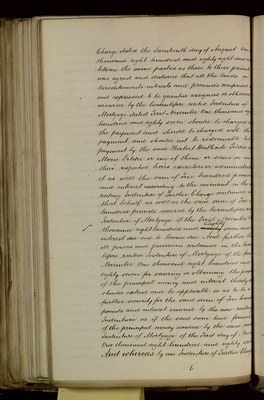 Charge dated the Seventeenth day of August One
thousand eight hundred and eighty eight and made
between the same parties as those to these presents
was agreed and declared that all the lands
hereditaments interests and premises comprised
and expressed to be granted assigned or otherwise
assured by the hereinbefore recited Indenture of
Mortgage dated First November One thousand eight
hundred and eighty seven should be charged with
the payment and should be charged with the
payment and should not be redeemable but
payment by the said Herbert
Maria or one of them or some or one
their respective heirs executors or administrators
of as well the sum of Two hundred pounds
and interest according to the covenant in the
reciting Indenture of Further Charge contained in
that behalf as well as the said sum of
hundred pounds secured by the hereinbefore
Indenture of Mortgage of the First November One
thousand eight hundred and eighty
interest due and to become due And further that
all powers and provisions contained in the
before recited Indenture of Mortgage of the first
November One thousand eight hundred and
eighty seven for securing or obtaining the payment
of the principal money and interest thereby
should extend and be applicable so as to be a
further security for the said sum of Two hundred
pounds and interest secured by the now reciting
Indenture as if the said sum had formed
of the principal money secured by the said
Indenture of Mortgage of the First day of November
One thousand eight hundred and eighty seven
And whereas by an Indenture of Further Charge